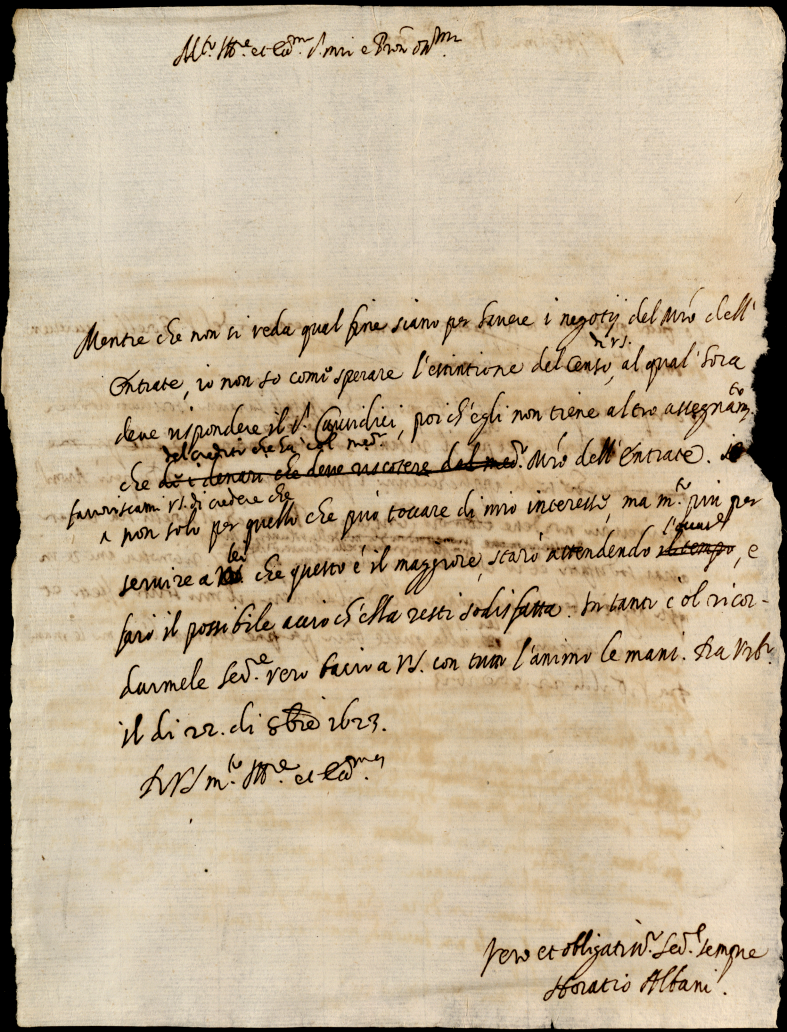 M.to Ill.re et Ecc.mo S.r mio e P.ron oss.mo
Mentre che non si veda qual fine siano per havere i negotij del Mro dell'
di VS.
Entrate, io non so com'o sperare l'estintione del Censo, al qual hora
deve rispondere il S.r Causidici, poich'egli non tiene altro assegnam.to
del credito che ha col med.o
che di i denari che deve riscotere dal med.o Mro dell'Entrate. io
favoriscami VS. di credere che
non solo per quello che può toccare di mio interesse, ma m.to più per
lei
servire a che questo é il maggiore, starò attendendo il tempo, e
farò il possibile acciò ch'ella resti sodisfatta. In tanto col ricor-
darmele Ser.e vero bacio a VS. con tutto l'animo le mani. Da Urb.o
il di 22. di 8bre 1623.
Di VS m.to Ill.re et Ecc.ma
Vero et obligatiss.o Ser.e sempre
Horatio Albani